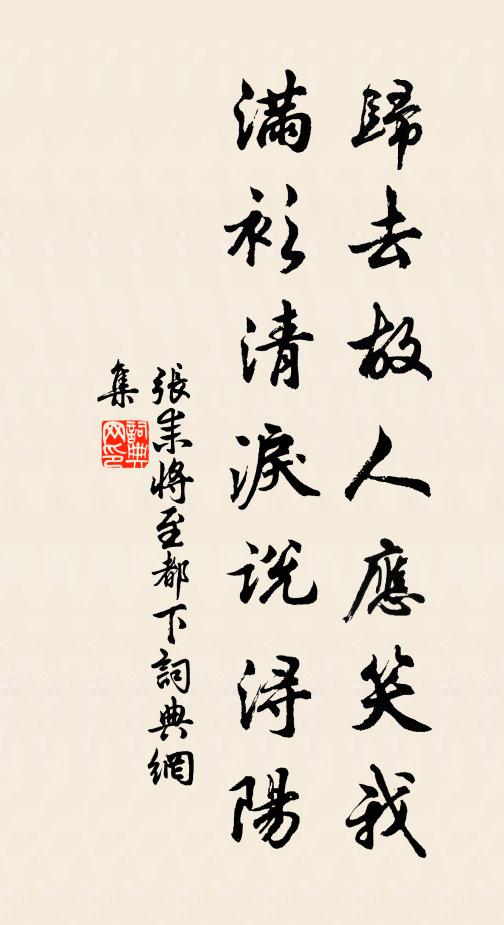 歸去故人應笑我
滿衫清淚説潯陽
張耒將至都下詞典網
集
詞典
网印